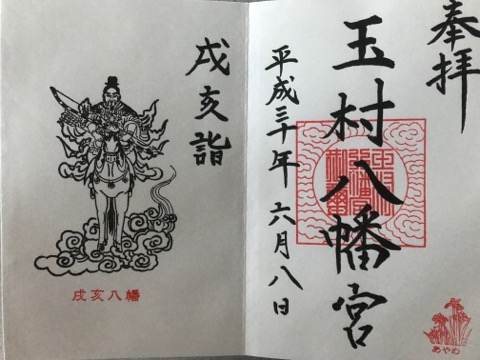 奉拝
玉村八幡宮
平成三十年六月八日
あやめ
戌亥詣
戌亥八幡